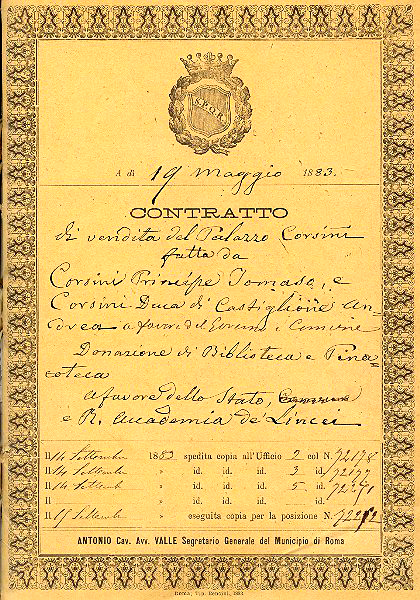 S.P.Q.R.
A dì 19 Maggio 1883.
CONTRATTO
di vendita del Palazzo Corsini
fatta da
Corsini Principe Tomaso, e
Corsini Duca di Castiglione An-
drea a favore del Governo e Comune
Donazione di Biblioteca e Pina-
coteca
a favore dello Stato,
e R. Accademia de' Lincei
Il 14 Settembre 1883 spedita copia all'Ufficio 2 col N. 72178
Il 14 Settembre » id. id. id. 3 id.
Il 14 Settemb » id. id. id. 5 id.
Il » id. id. id. id.
Il Settemb » eseguita copia per la posizione N.
ANTONIO Cav. Avv. VALLE Segretario Generale del Municipio di Roma
Roma, Tip. Cecchini, 1883